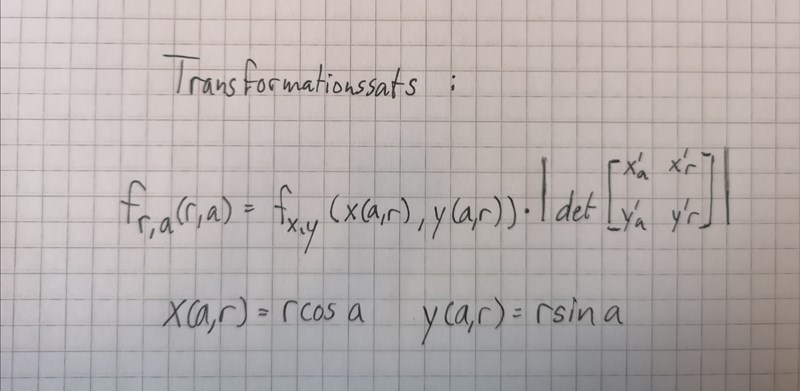 Transformationssats :
f_{r,a}(r,a) = f_{x,y}(x(a,r), y(a,r)) · |det [x'_a x'_r; y'_a y'_r]|
x(a,r) = r cos a y(a,r) = r sin a